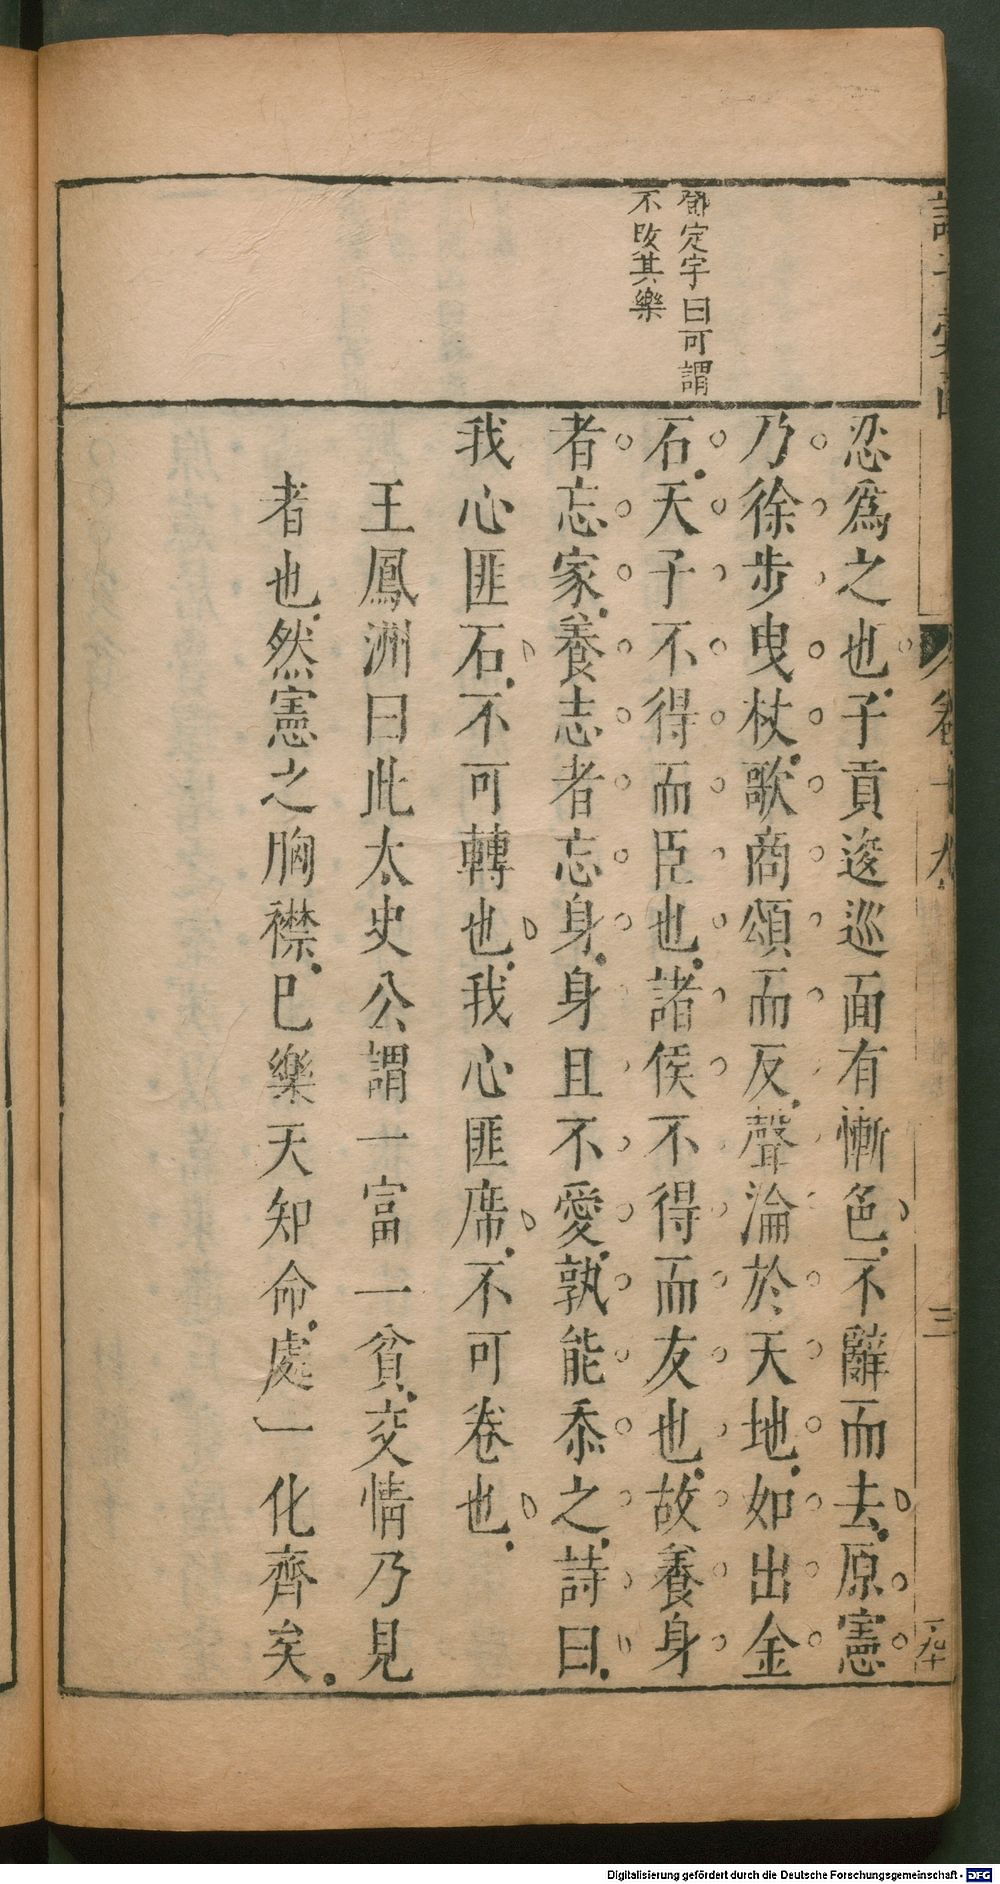 鄧定宇曰可謂
不改其樂
忍爲之也子貢逡巡面有慚色不辭而去原憲
乃徐步曳杖歌商頌而反聲淪於天地如出金
石天子不得而臣也諸侯不得而友也故養身
者忘家養志者忘身身且不愛孰能忝之詩曰
我心匪石不可轉也我心匪席不可卷也
王鳳洲曰此太史公謂一富一貧交情乃見
者也然憲之胸襟已樂天知命處一化齊矣
卷十九
三
Digitalisierung gefördert durch die Deutsche Forschungsgemeinschaft - DFG